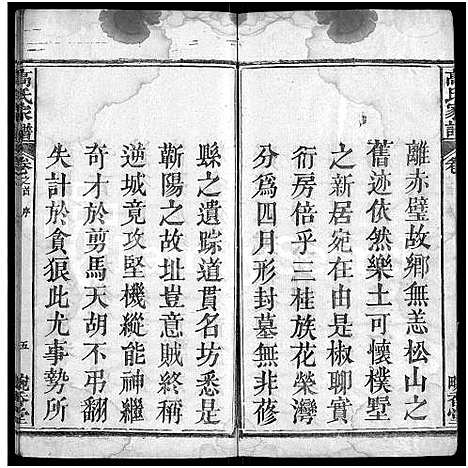 高氏家譜 卷
離赤璧故鄉無恙松山之
舊迹依然樂土可懷樸墅
之新居宛在是椒聊實
衍房倍乎三桂族花榮灣
分爲四月形封墓無非蓚
縣之遺踪道貫名坊悉是
蘄陽之故址豈意賊終稱
逆城竟攻堅機縱能神繼
奇才於剪馬天胡不弔翻
失計於貪狼此尤事勢所
高氏家譜 卷之首 序 五 畹香堂